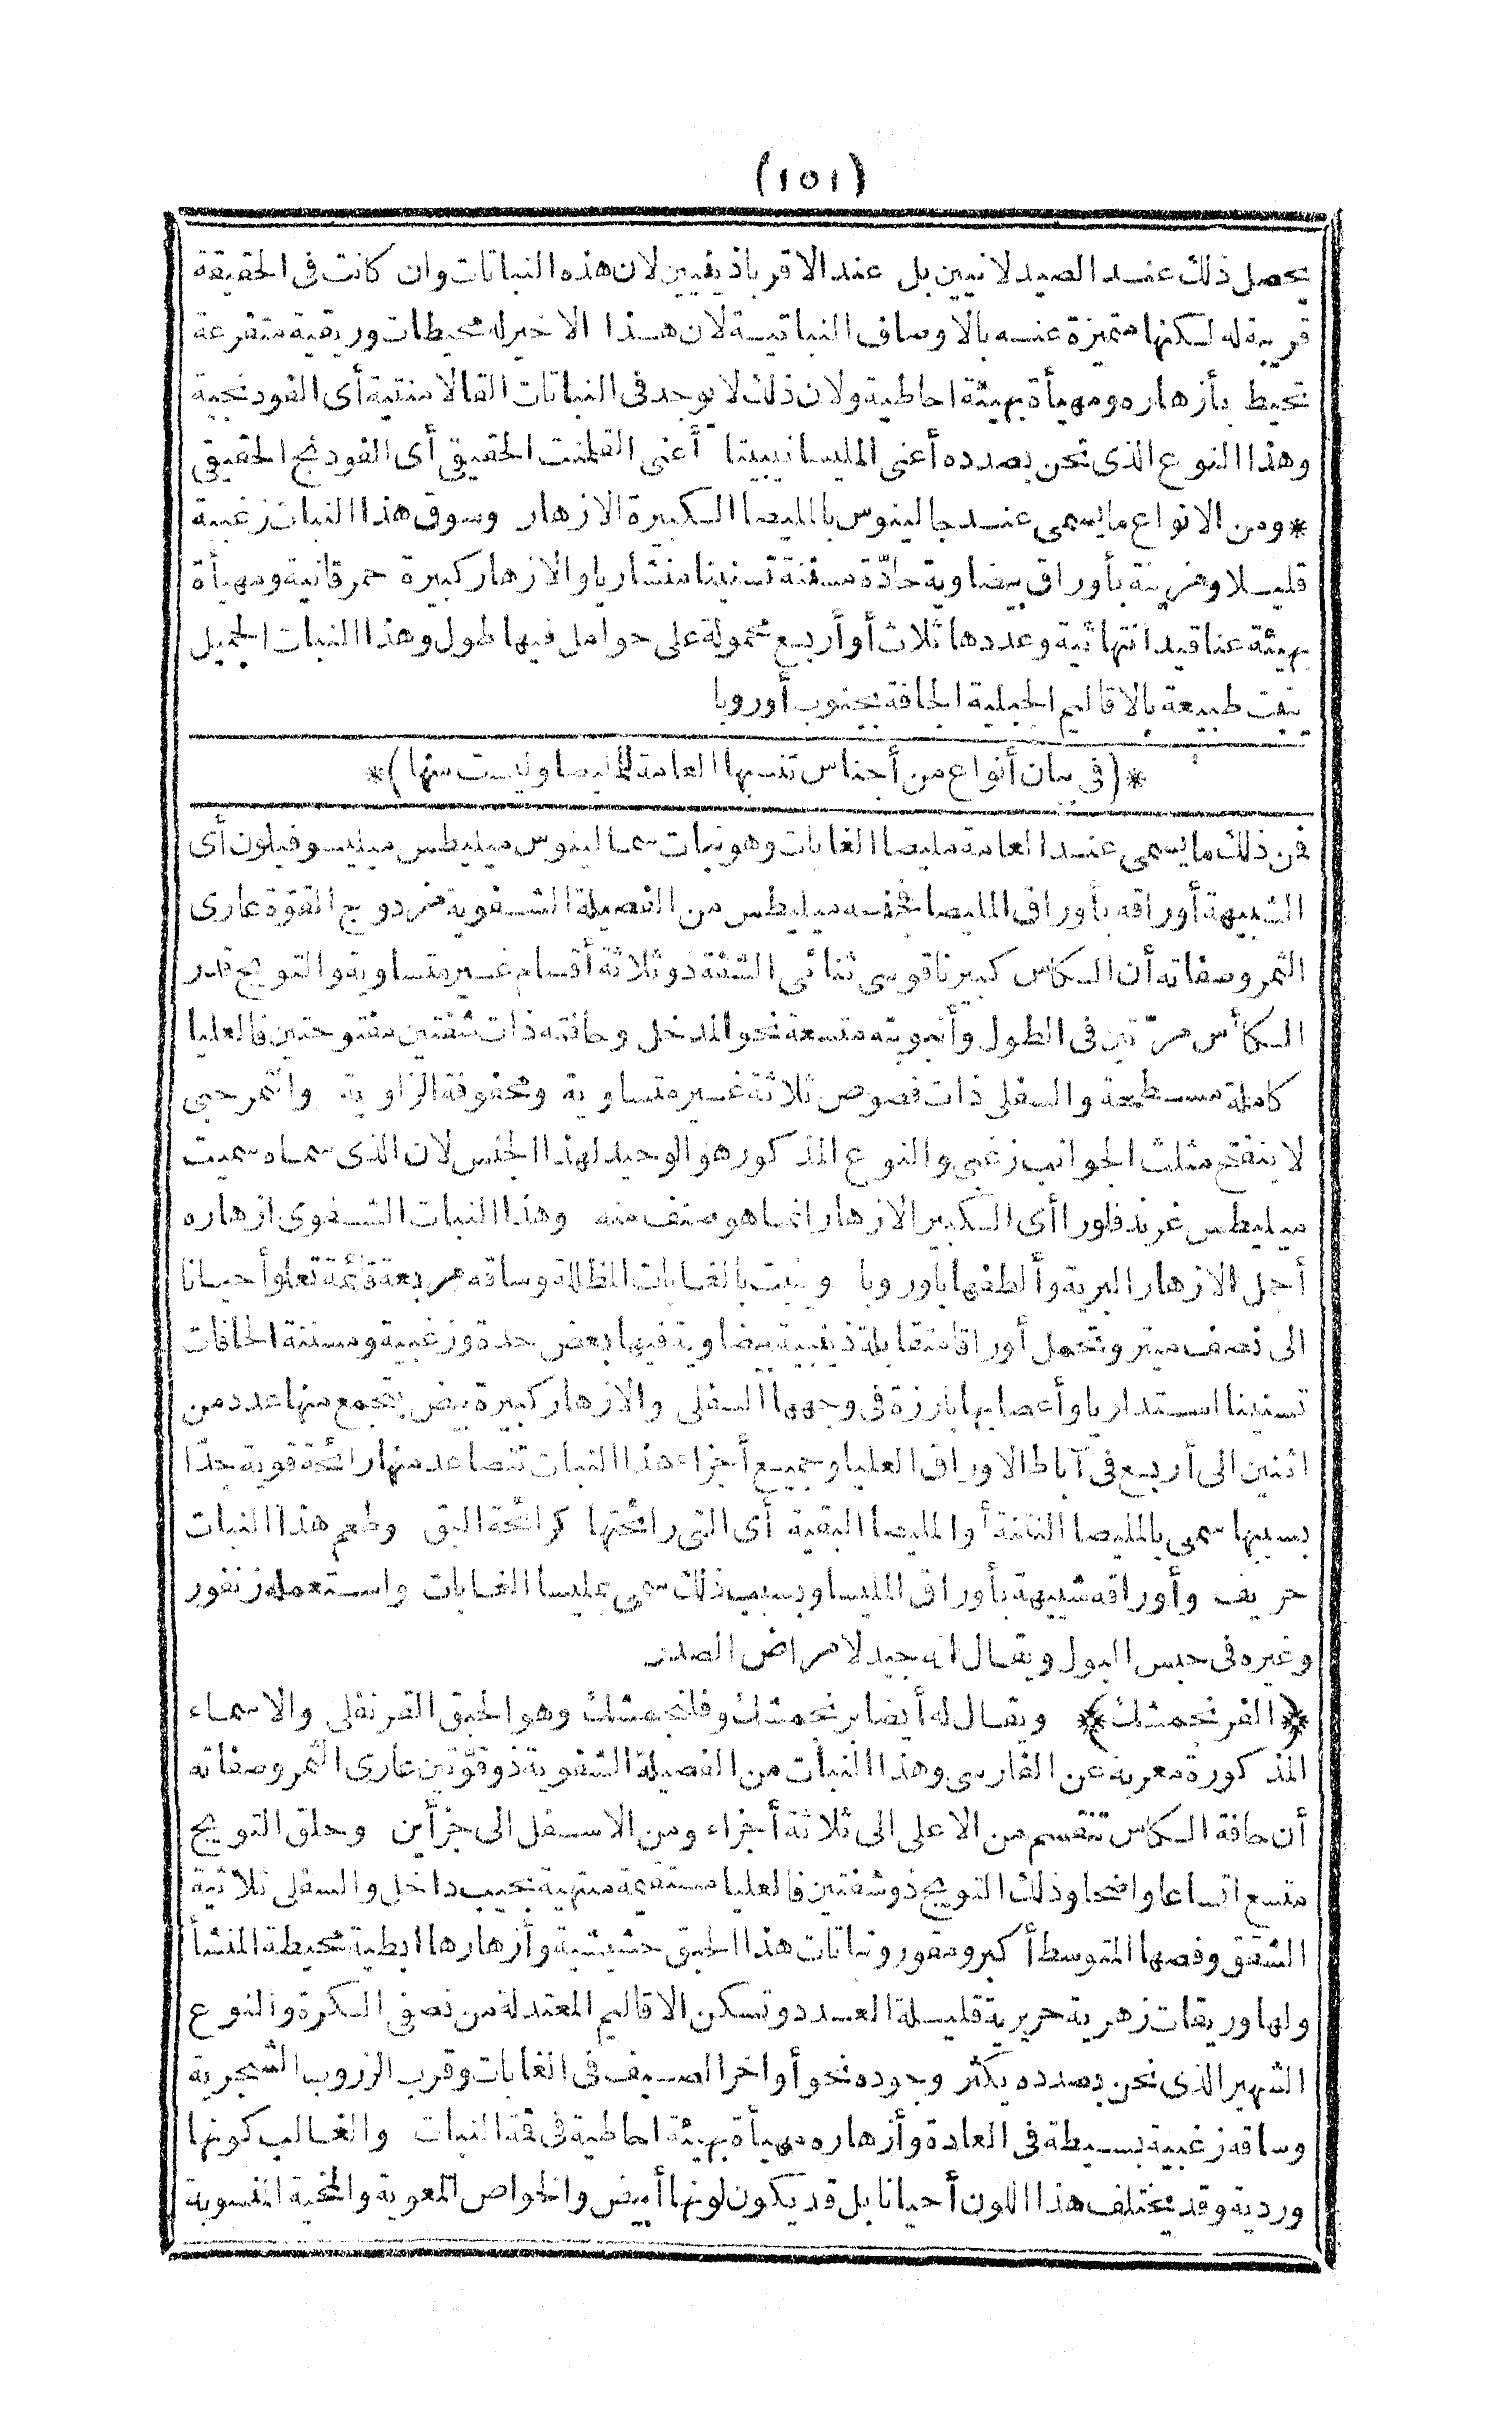 (١٥١)
يحصل ذلك عند الصيدلانيين بل عند الاقرباذينيين لان هذه النباتات وان كانت فى الحقيقة
قريبة له لكنها متميزة عنه بالاوصاف النباتية لان هذا الاخير له محيطات وريقية متفرعة
تحيط بأزهاره ومهيأة بهيئة احاطية ولان ذلك لا يوجد فى النباتات القالامنتية أى الفودنجية
وهذا النوع الذى نحن بصدده أعنى المليسا نيبيتا أعنى القلمنت الحقيق أى الفودنج الحقيق
*ومن الانواع ما يسمى عند جالينوس بالمليصا الكبيرة الازهار وسوق هذا النبات زغبية
قليلا ومزينة بأوراق بيضاوية حادّة مسننة تسنينا منشاريا والازهار كبيرة حمر قانية ومهيأة
بهيئة عناقيد انتهائية وعددها ثلاث أو أربع محمولة على حوامل فيها طول وهذا النبات الجميل
ينبت طبيعة بالاقاليم الجبلية الجافة بجنوب أوروبا
*(فى بيان أنواع من أجناس تنسبها العامة للمليصا وليست منها)*
فمن ذلك ما يسمى عند العامة مليصا الغابات وهو نبات سماه لينوس ميليطس ميليسوفيلون أى
الشبيهة أوراقه بأوراق المليصا فجنسه ميليطس من الفصيلة الشفوية مزدوج القوّة عارى
الثمر وصفاته أن الكاس كبير ناقوسى ثنائى الشفة ذو ثلاثة أقسام غير متساوية والتويج قدر
الكأس مرّتين فى الطول وأنبوبته متسعة نحو المدخل وحافته ذات شفتين مفتوحتين فالعليا
كاملة مسطحة والسفلى ذات فصوص ثلاثة غير متساوية ومحفوفة الزاوية والثمر حبى
لا ينفتح مثلث الجوانب زغبى والنوع المذكور هو الوحيد لهذا الجنس لان الذى سماه سميث
ميليطس غرندفلورا أى الكبير الازهار انما هو صنف منه وهذا النبات الشفوى ازهاره
أجمل الازهار البرية وألطفها باوروبا وينبت بالغابات المظللة وساقه مربعة قائمة تعلو أحيانا
الى نصف ميتر وتحمل أوراقا متقابلة ذنيبية بيضاوية فيها بعض حدة وزغبية ومسننة الحافات
تسنينا استداريا وأعصابها بارزة فى وجهها السفلى والازهار كبيرة بيض يتجمع منها عدد من
اثنين الى أربع فى آباط الاوراق العليا وجميع أجزاء هذا النبات تتصاعد منها رائحة قوية جدّا
بسببها سمى بالمليصا النتنة أو المليصا البقية أى التى رائحتها كرائحة البق وطعم هذا النبات
حريف وأوراقه شبيهة بأوراق المليسا وبسبب ذلك سمى بمليسا الغابات واستعمله زنفور
وغيره فى حبس البول ويقال انه جيد لامراض الصدر
﴿الفرنجمشك﴾ ويقال له أيضا برنجمشك وفلنجمشك وهو الحبق القرنفلى والاسماء
المذكورة معربة عن الفارسى وهذا النبات من الفصيلة الشفوية ذو قوّتين عارى الثمر وصفاته
أن حافة الكاس تنقسم من الاعلى الى ثلاثة أجزاء ومن الاسفل الى جزأين وحلق التويج
متسع اتساعا واضحا وذلك التويج ذو شفتين فالعليا مستقيمة منتهية بجيب داخل والسفلى ثلاثية
الشقق وفصها المتوسط أكبر ومقور ونباتات هذا الحبق حشيشية وأزهارها ابطية محيطة المنشأ
ولها وريقات زهرية حريرية قليلة العدد وتسكن الاقاليم المعتدلة من نصفى الكرة والنوع
الشهير الذى نحن بصدده يكثر وجوده نحو أواخر الصيف فى الغابات وقرب الزروب الشجرية
وساقه زغبية بسيطة فى العادة وأزهاره مهيأة بهيئة احاطية فى قمة النبات والغالب كونها
وردية وقد يختلف هذا اللون أحيانا بل قد يكون لونها أبيض والخواص المعوية والمخية المنسوبة